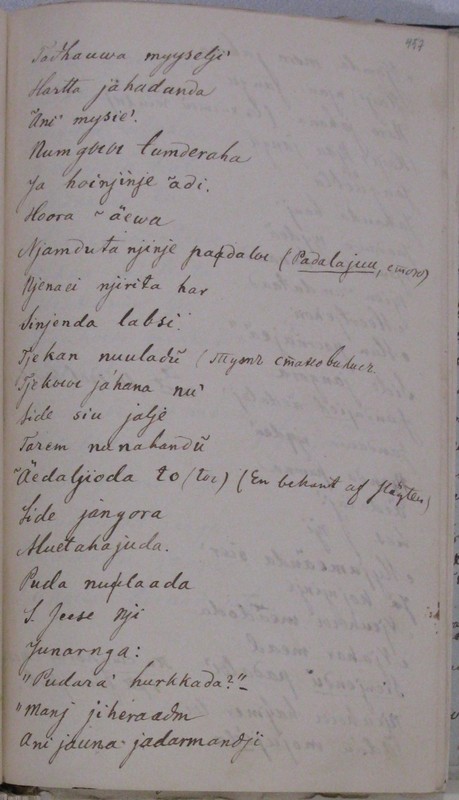 457
Tadhauwa myyselji'
Hartta jähadanda
Ani' mysie'.
Numgвеве tumderaha
Ja hoinjinje ädi.
Hoora äewa
Njamduta njinje padalwe (Padalajuu, стого)
Njenaei njirita har
Sinjenda labsi.
Tjekan nuuladũ (Тутъ становились.
Tjekuwe jähana nu'
Side siu jalje
Tarem nanahandũ
Äedaljioda to (toe) (En bekant af släyten)
Side jängora
Muetahajuda.
Puda nuplaada
S. Jeese nji
Junarnga:
"Pudara' hurkkada?"-
"Manj jiheraadm
Ani jauna jadarmandji